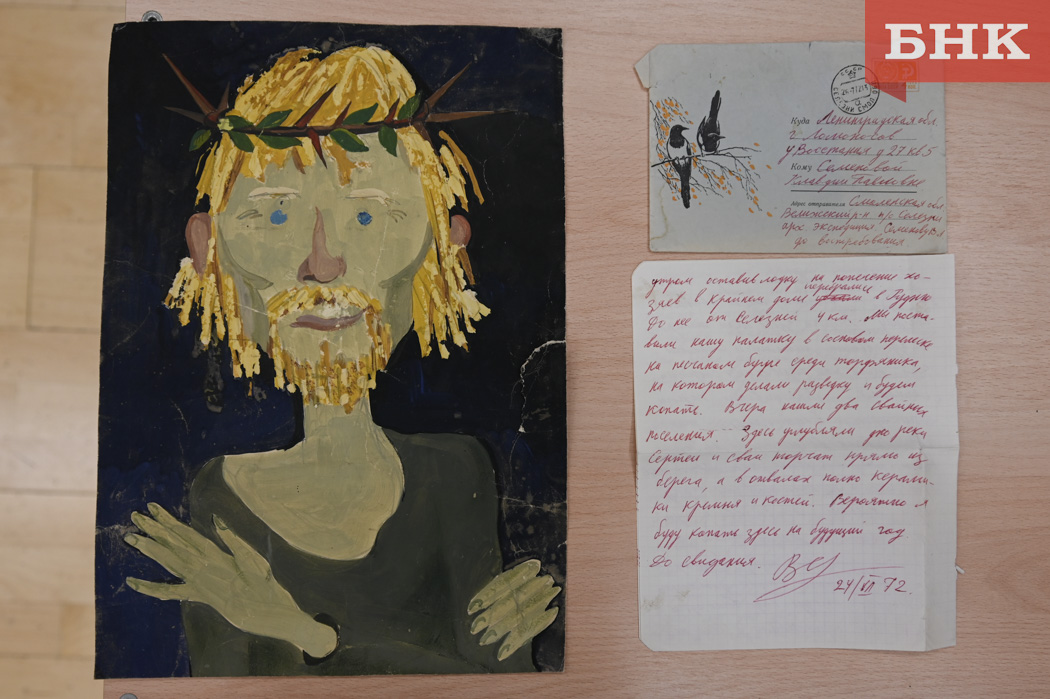 БНК
Куда Ленинградская обл.
г Ломоносов
ул Восстания д 27 кв 5
Кому Семеновой
Клавдии Павловне
Адрес отправителя Смоленская обл
Велижский р-н п/о Селезни
арх экспедиция Семенову В.А
до востребования
утром оставив лодку на попечение хо-
зяев в крайнем доме перебрались в Рудню
До нее от Селезней 4 км. Мы поста-
вили нашу палатку в сосновом перелеске
на песчаном бугре среди торфяника,
на котором делали разведку и будем
копать. Вчера нашли два свайных
поселения. Здесь углубляли дно реки
Сертеи и сваи торчат прямо из
берега, а в отвалах полно керами-
ки кремня и костей. Вероятно я
буду копать здесь на будущий год
До свидания.
24/VII 72.